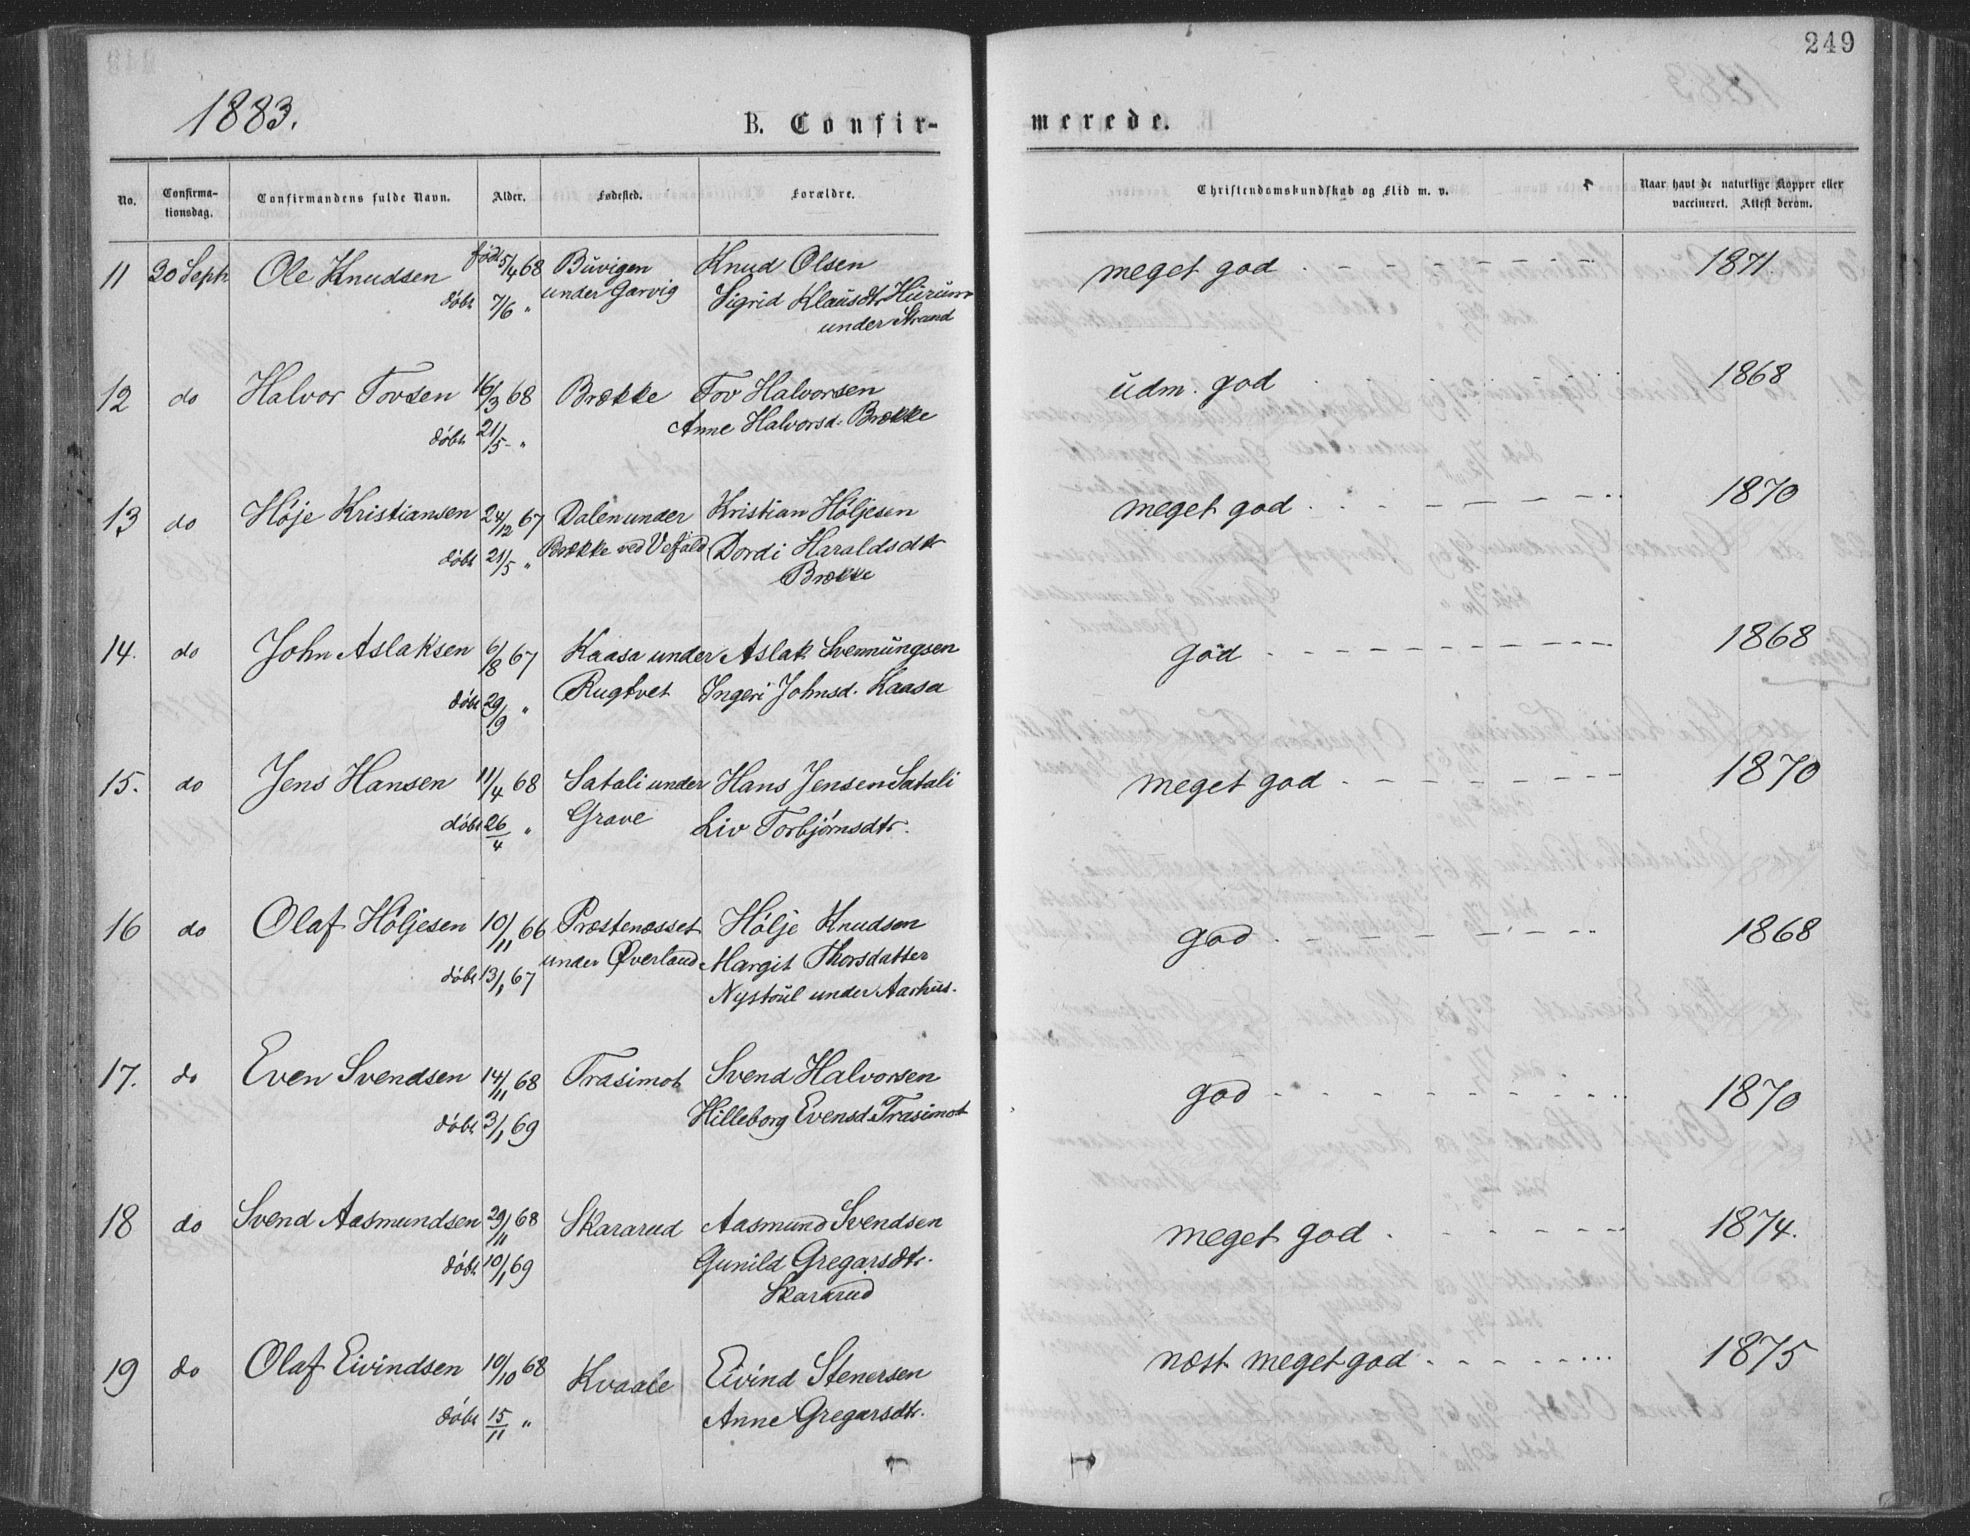 249
1883.
B. Confir-
merede.
No.
Confirma-
tionsdag.
Confirmandens fulde Navn.
Alder.
Fødested.
Forældre.
Christendomskundskab og Flid m. v.
Naar havt de naturlige Kopper eller
vaccineret. Attest derom.
11 30 Septr Ole Knudsen født 5/4 68 Buvigen Knud Olsen meget god 1871.
døbt 7/6 " under Garvig Sigrid Klausdtr Hürum
under Strand
12 do Halvor Tovsen 16/3 68 Brække Tov Halvorsen udm. god 1868
døbt 21/5 " Anne Halvorsd. Brække
13 do Høje Kristiansen 24/12 67 Dalen under Kristian Høljesen meget god 1870
døbt 21/5 " Brække ved Vefald Dordi Haraldsdtr
Brække
14. do John Aslaksen 6/8 67 Kaasa under Aslak Svennungsen god 1868
døbt 29/9 " Rugtvet Ingeri Johnsd. Kaasa
15. do Jens Hansen 11/4 68 Satali under Hans Jensen Satali meget god 1870
døbt 26/4 " Grave Liv Torbjørnsdtr.
16 do Olaf Høljesen 10/11 66 Præstenæsset Hølje Knudsen god 1868
døbt 13/1 67 under Øverland Margit Thorsdatter
Nystoul under Aarhus.
17. do Even Svendsen 14/11 68 Trasimot Svend Halvorsen god 1870
døbt 3/1 69 Hilleborg Evensd. Trasimot
18 do Svend Aasmundsen 29/11 68 Skararud Aasmund Svendsen meget god 1874.
døbt 10/1 69 Gunild Gregarsdtr.
Skararud
19 do Olaf Eivindsen 10/10 68 Kvaale Eivind Stenersen næst meget god 1875
døbt 15/11 " Anne Gregarsdtr.